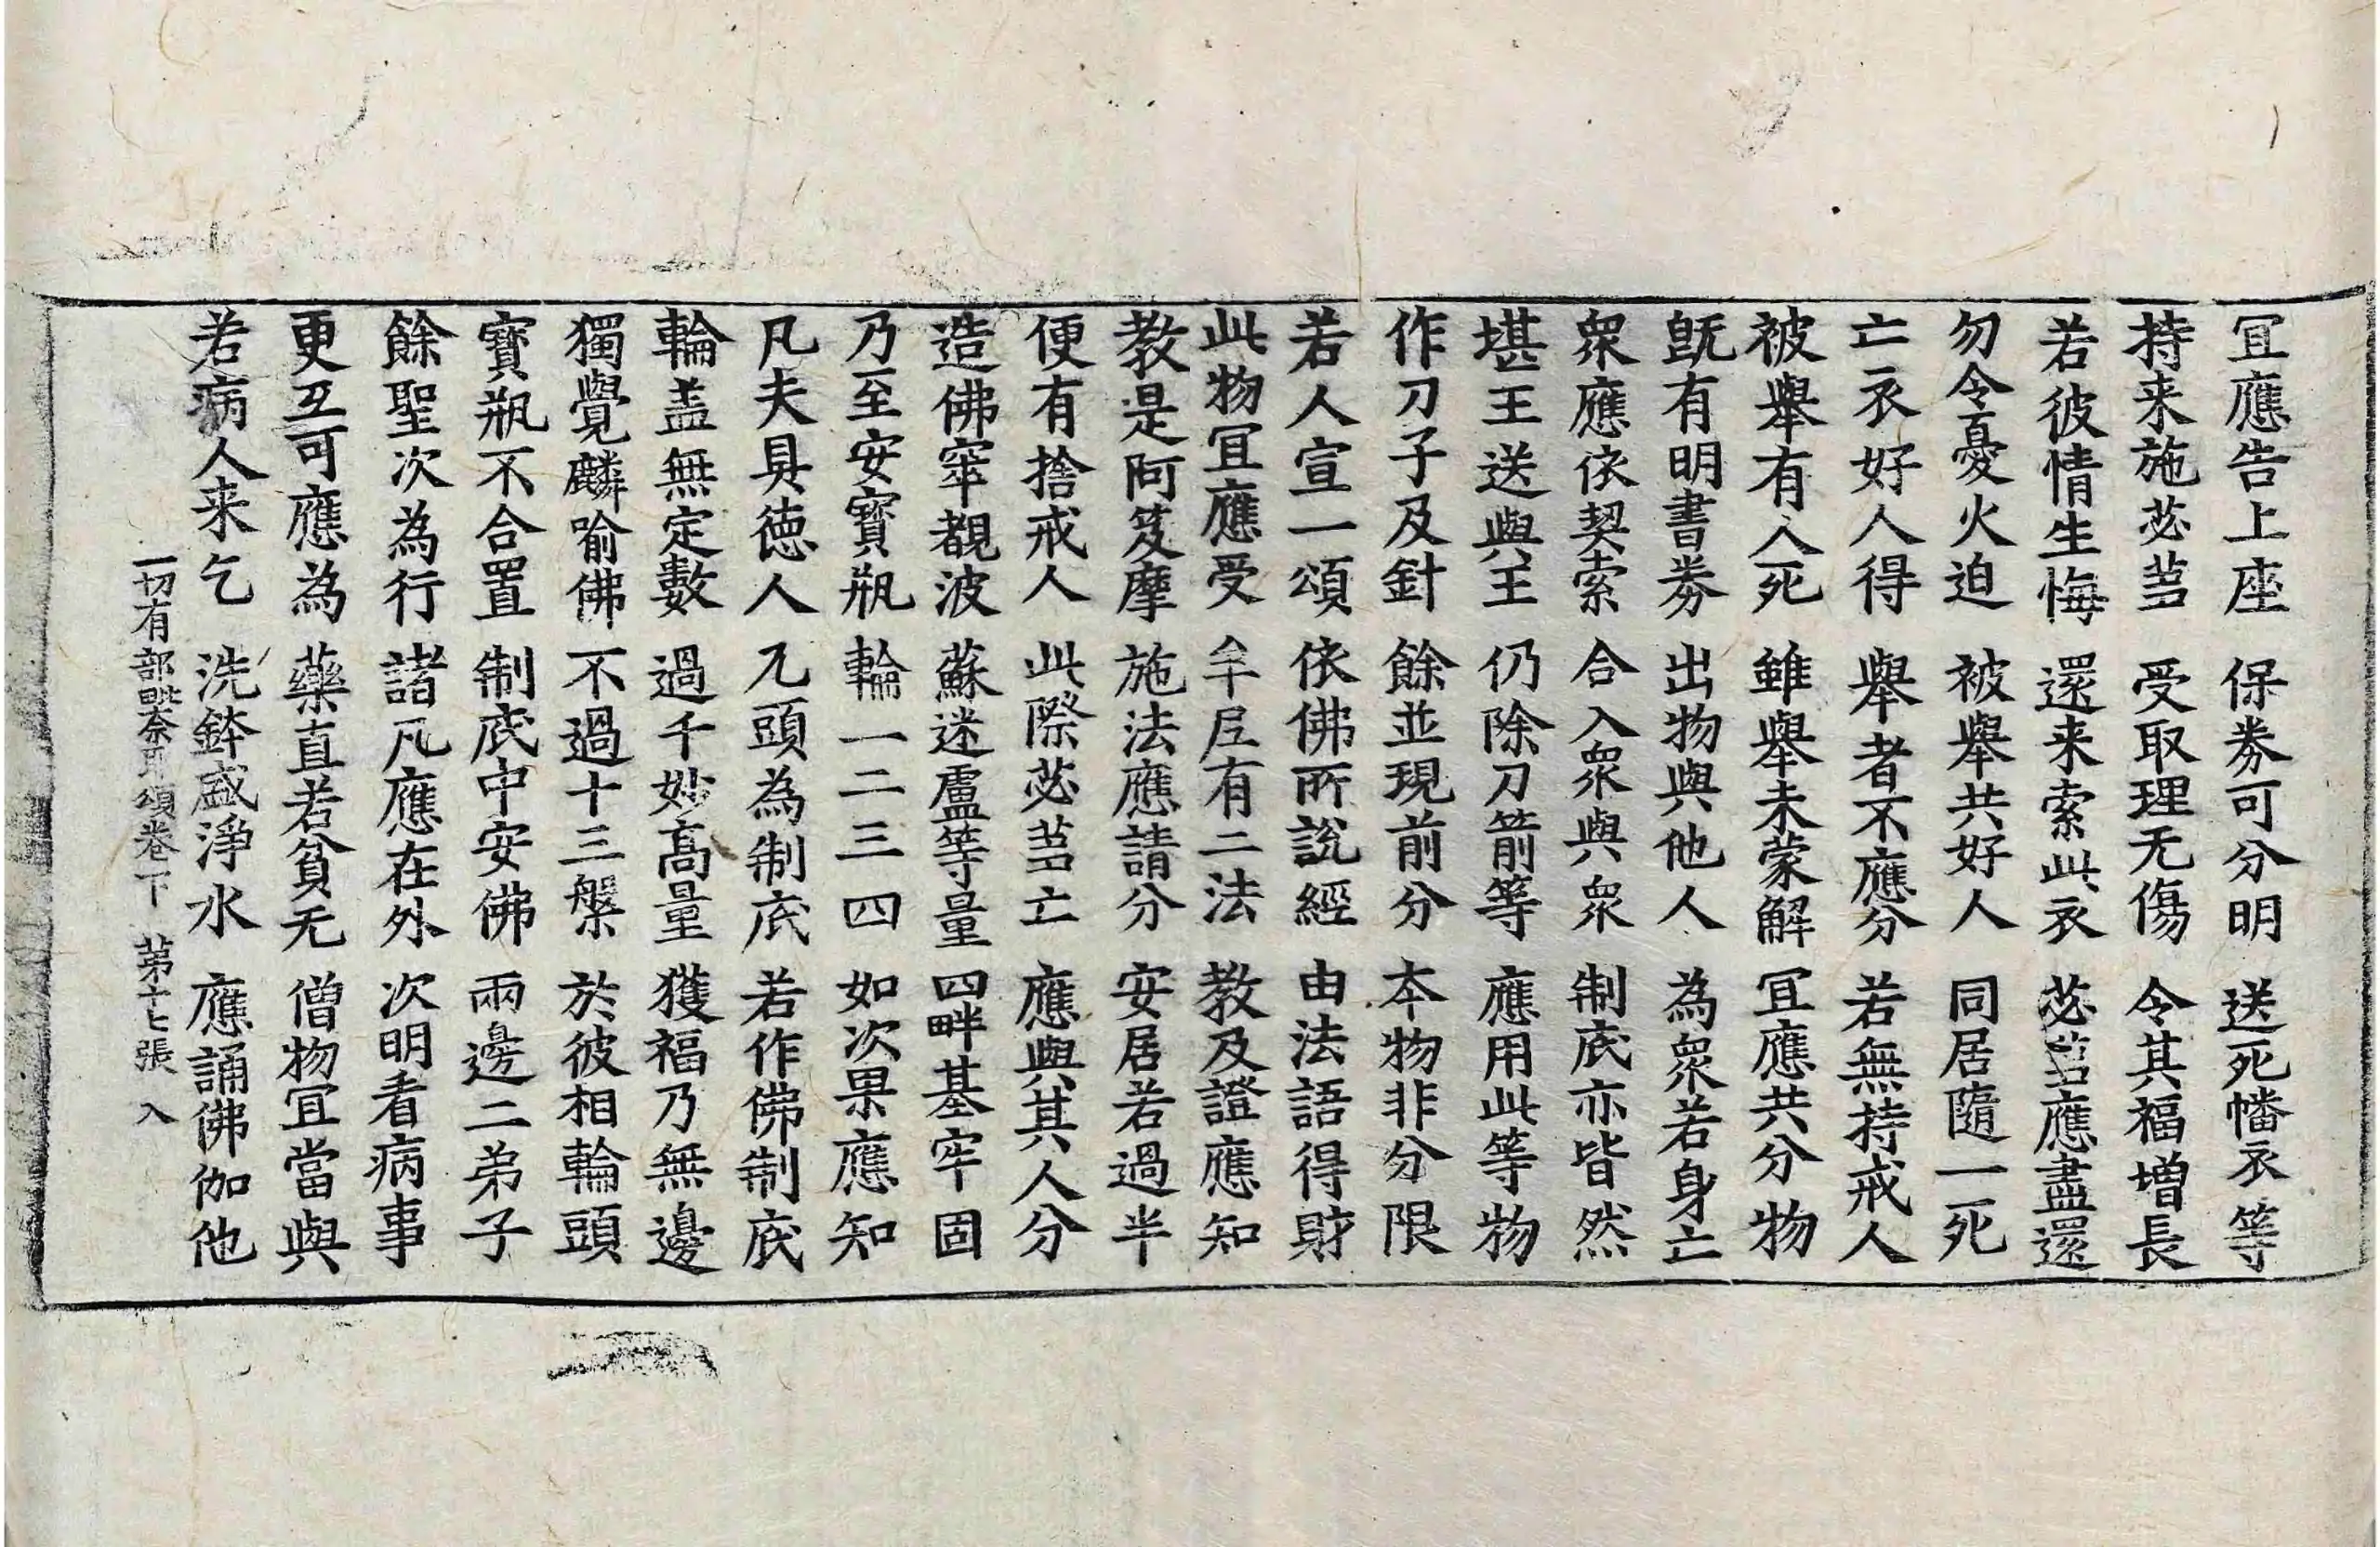 冝應告上座 保劵可分明 送死幡衣等
持来施苾芻 受取理无傷 令其福增長
若彼情生悔 還来索此衣 苾芻應盡還
勿令憂火迫 被舉共好人 同居隨一死
亡衣好人得 舉者不應分 若無持戒人
被舉有人死 雖舉未蒙解 冝應共分物
旣有明書劵 出物與他人 為衆若身亡
衆應依契索 合入衆與衆 制底亦皆然
堪王送與王 仍除刀箭等 應用此等物
作刀子及針 餘並現前分 本物非分限
若人宣一頌 依佛所說經 由法語得財
此物冝應受 牟尼有二法 教及證應知
教是阿笈摩 施法應請分 安居若過半
便有捨戒人 此際苾芻亡 應與其人分
造佛窣覩波 蘇迷盧等量 四畔基牢固
乃至安寳瓶 輪一二三四 如次果應知
凡夫具德人 兀頭為制底 若作佛制底
輪盖無定數 過千妙高量 獲福乃無邊
獨覺麟喻佛 不過十三槃 於彼相輪頭
寳瓶不合置 制底中安佛 兩邊二弟子
餘聖次為行 諸凡應在外 次明看病事
更互可應為 藥直若貧无 僧物冝當與
若病人来乞 洗鉢盛淨水 應誦佛伽他
一切有部毗奈耶頌卷下 第十七張 入